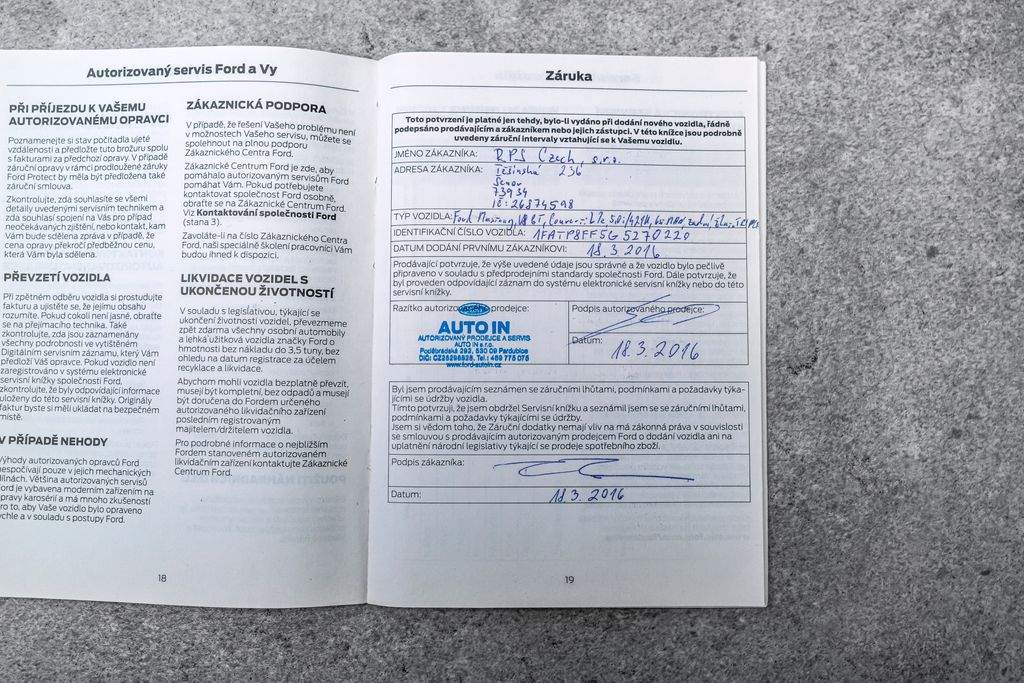 Autorizovaný servis Ford a Vy
PŘI PŘÍJEZDU K VAŠEMU
AUTORIZOVANÉMU OPRAVCI
Poznamenejte si stav počítadla ujeté
vzdálenosti a předložte tuto brožuru spolu
s fakturami za předchozí opravy. V případě
záruční opravy v rámci prodloužené záruky
Ford Protect by měla být předložena také
záruční smlouva.
Zkontrolujte, zda souhlasíte se všemi
detaily uvedenými servisním technikem a
zda souhlasí spojení na Vás pro případ
neočekávaných zjištění, nebo kontakt, kam
Vám bude sdělena zpráva v případě, že
cena opravy překročí předběžnou cenu,
která Vám byla sdělena.
PŘEVZETÍ VOZIDLA
Při zpětném odběru vozidla si prostudujte
fakturu a ujistěte se, že jejímu obsahu
rozumíte. Pokud cokoli není jasné, obraťte
se na přejímacího technika. Také
zkontrolujte, zda jsou zaznamenány
všechny podrobnosti ve vytištěném
Digitálním servisním záznamu, který Vám
předloží Váš opravce. Pokud vozidlo není
zaregistrováno v systému elektronické
servisní knížky společnosti Ford,
zkontrolujte, že byly odpovídající informace
uloženy do této servisní knížky. Originály
faktur byste si měli ukládat na bezpečném
místě.
V PŘÍPADĚ NEHODY
Výhody autorizovaných opravců Ford
nespočívají pouze v jejich mechanických
dílnách. Většina autorizovaných servisů
Ford je vybavena moderním zařízením na
opravy karosérií a má mnoho zkušeností
pro to, aby Vaše vozidlo bylo opraveno
rychle a v souladu s postupy Ford.
ZÁKAZNICKÁ PODPORA
V případě, že řešení Vašeho problému není
v možnostech Vašeho servisu, můžete se
spolehnout na plnou podporu
Zákaznického Centra Ford.
Zákaznické Centrum Ford je zde, aby
pomáhalo autorizovaným servisům Ford
pomáhat Vám. Pokud potřebujete
kontaktovat společnost Ford osobně,
obraťte se na Zákaznické Centrum Ford.
Viz Kontaktování společnosti Ford
(strana 3).
Zavoláte-li na číslo Zákaznického Centra
Ford, naši speciálně školení pracovníci Vám
budou ihned k dispozici.
LIKVIDACE VOZIDEL S
UKONČENOU ŽIVOTNOSTÍ
V souladu s legislativou, týkající se
ukončení životnosti vozidel, převezmeme
zpět zdarma všechny osobní automobily
a lehká užitková vozidla značky Ford o
hmotnosti bez nákladu do 3,5 tuny, bez
ohledu na datum registrace za účelem
recyklace a likvidace.
Abychom mohli vozidla bezplatně převzít,
musejí být kompletní, bez odpadů a musejí
být doručena do Fordem určeného
autorizovaného likvidačního zařízení
posledním registrovaným
majitelem/držitelem vozidla.
Pro podrobné informace o nejbližším
Fordem stanoveném autorizovaném
likvidačním zařízení kontaktujte Zákaznické
Centrum Ford.
18
Záruka
Toto potvrzení je platné jen tehdy, bylo-li vydáno při dodání nového vozidla, řádně
podepsáno prodávajícím a zákazníkem nebo jejich zástupci. V této knížce jsou podrobně
uvedeny záruční intervaly vztahující se k Vašemu vozidlu.
JMÉNO ZÁKAZNÍKA: RPS Czech, s.r.o.
ADRESA ZÁKAZNÍKA: Těšínská 236
Šenov
73934
IČ: 26874598
TYP VOZIDLA: Ford Mustang, V8 GT,
IDENTIFIKAČNÍ ČÍSLO VOZIDLA: 1FATP8FF5G 5270220
DATUM DODÁNÍ PRVNÍMU ZÁKAZNÍKOVI: 18.3.2016
Prodávající potvrzuje, že výše uvedené údaje jsou správné a že vozidlo bylo pečlivě
připraveno v souladu s předprodejními standardy společnosti Ford. Dále potvrzuje, že
byl proveden odpovídající záznam do systému elektronické servisní knížky nebo do této
servisní knížky.
Razítko autorizovaného prodejce:
AUTO IN
AUTORIZOVANÝ PRODEJCE A SERVIS
AUTO IN s.r.o.
Poděbradská 292, 530 09 Pardubice
DIČ: CZ25298828, Tel.: 469 775 075
www.ford-autoin.cz
Podpis autorizovaného prodejce:
Datum: 18.3.2016
Byl jsem prodávajícím seznámen se záručními lhůtami, podmínkami a požadavky týka-
jícími se údržby vozidla.
Tímto potvrzuji, že jsem obdržel Servisní knížku a seznámil jsem se se záručními lhůtami,
podmínkami a požadavky týkajícími se údržby.
Jsem si vědom toho, že Záruční dodatky nemají vliv na má zákonná práva v souvislosti
se smlouvou s prodávajícím autorizovaným prodejcem Ford o dodání vozidla ani na
uplatnění národní legislativy týkající se prodeje spotřebního zboží.
Podpis zákazníka:
Datum: 18.3.2016
19